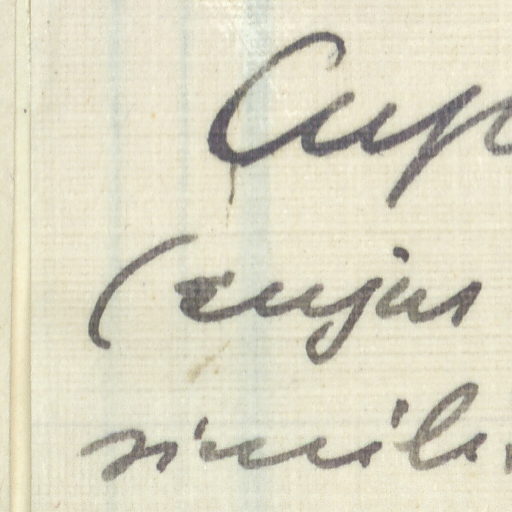 Cup
(cujus
simili